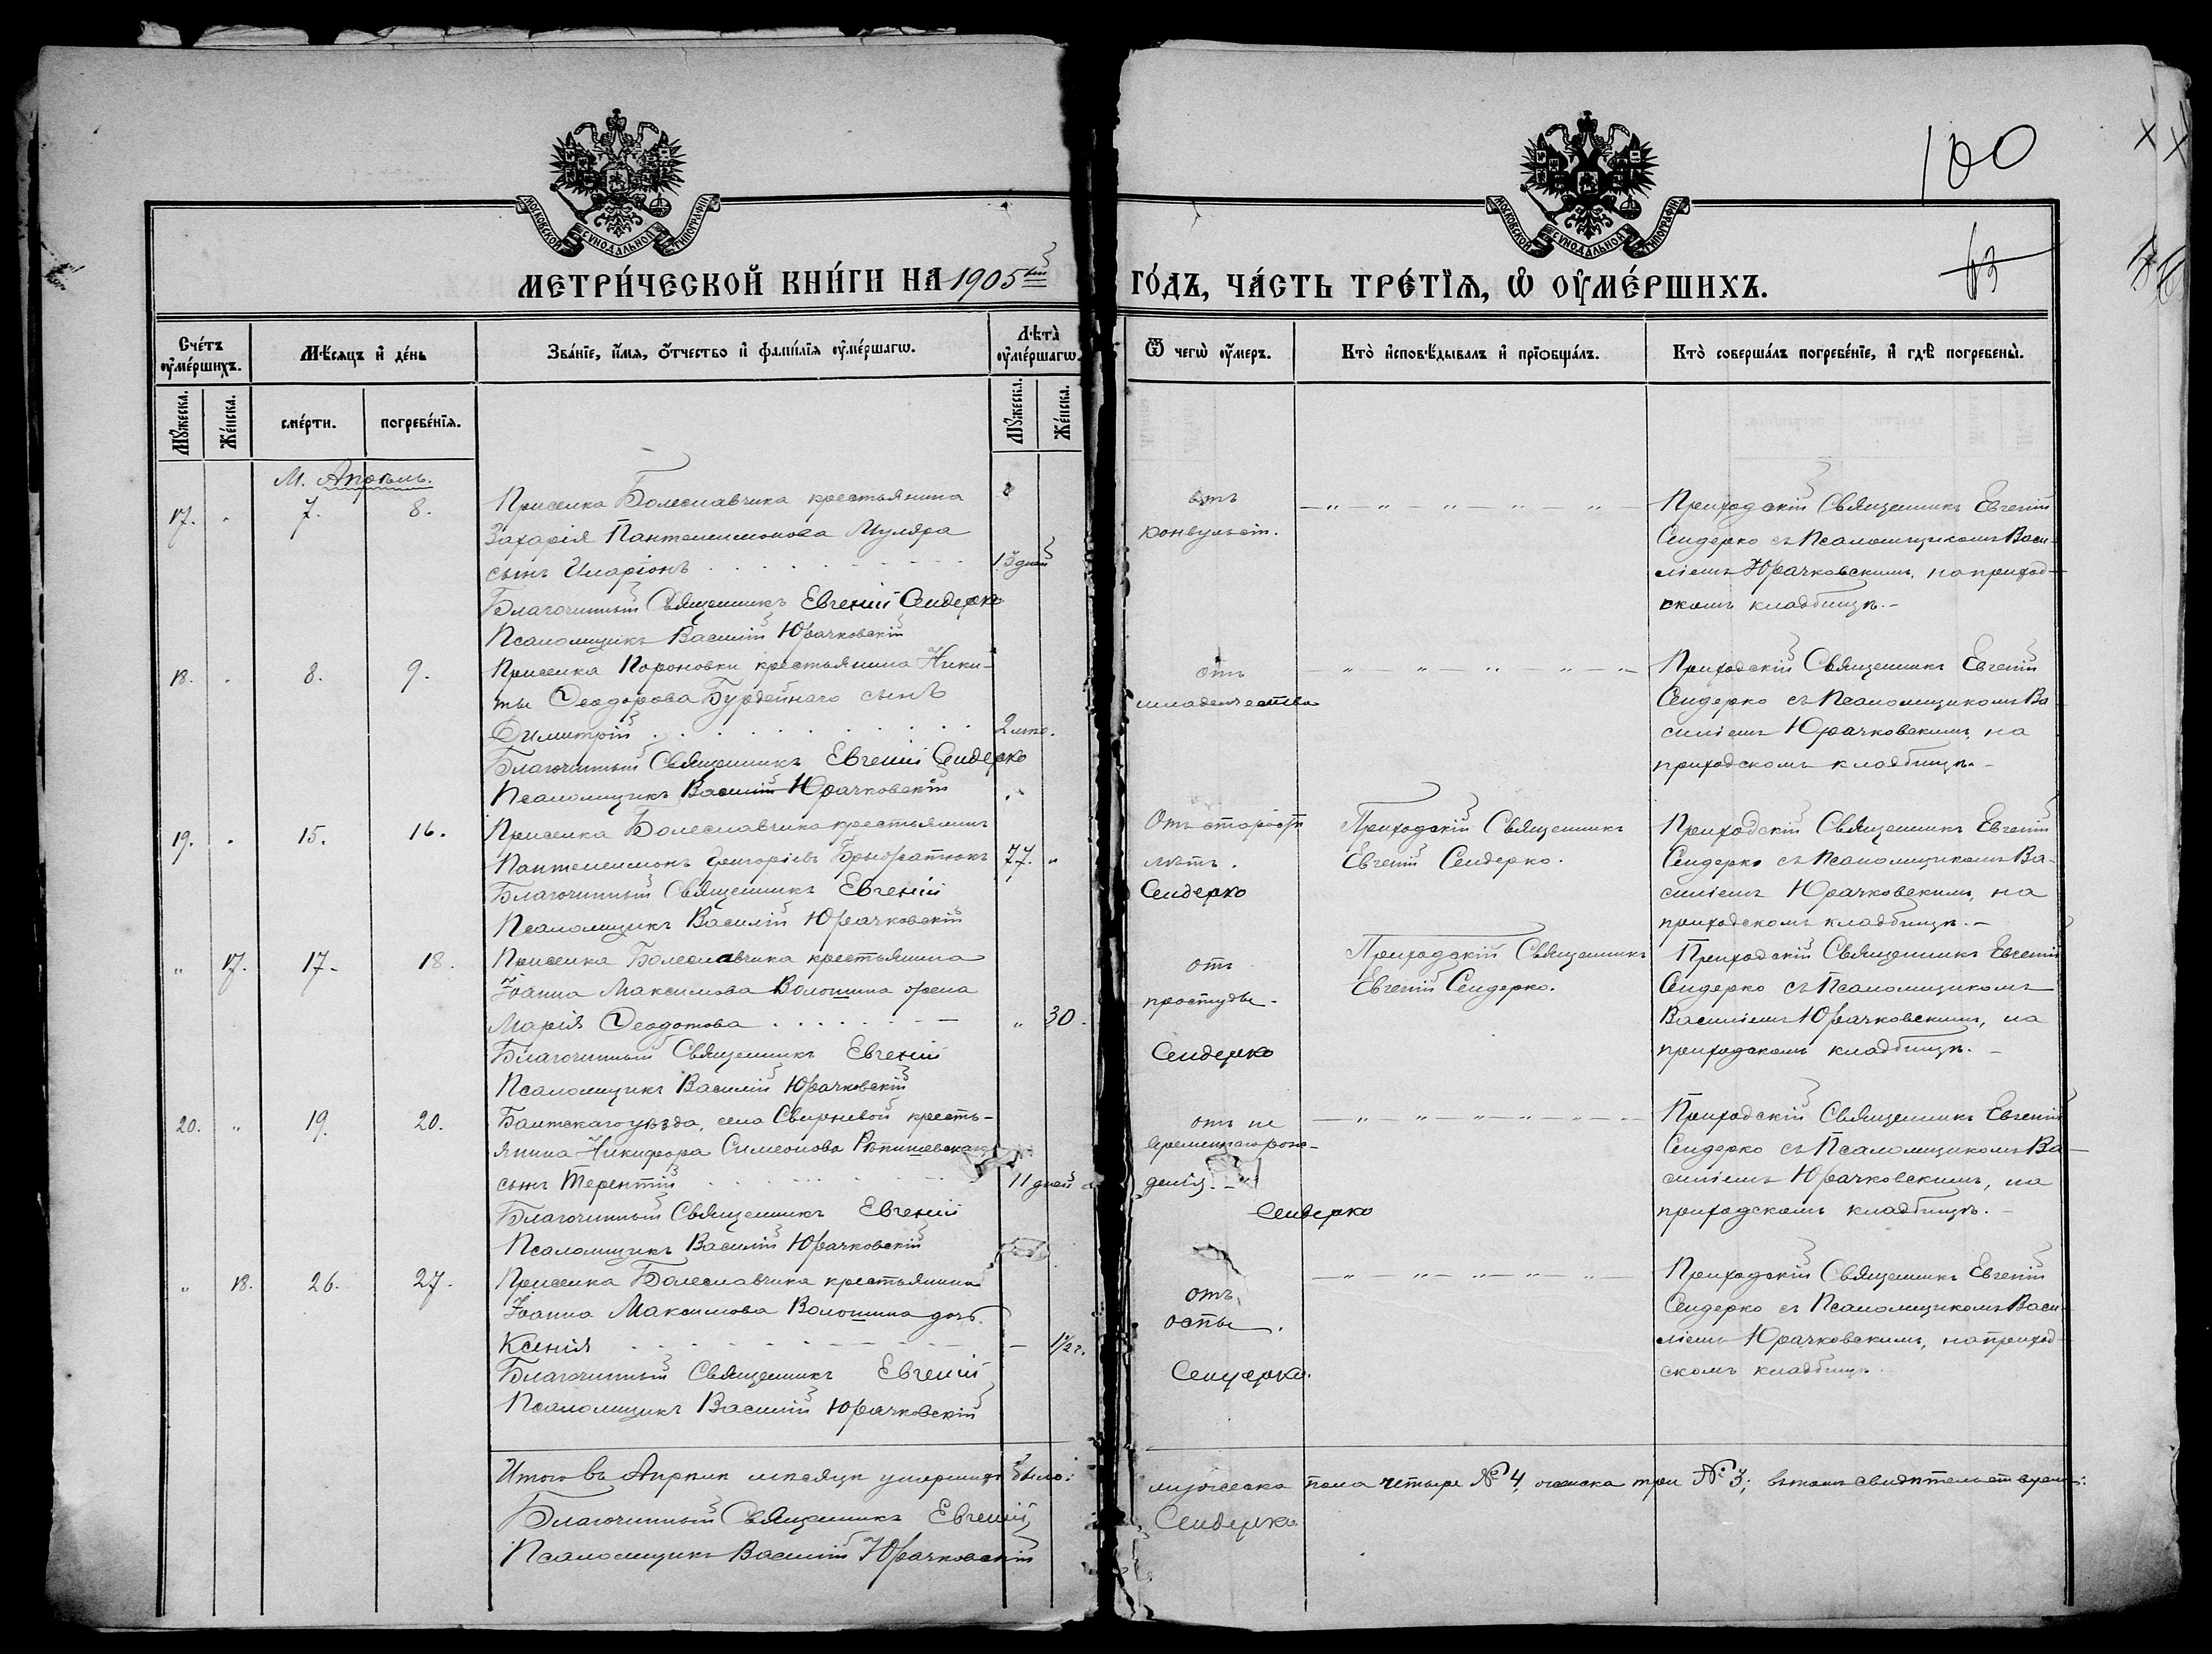 100
63
МОСКОВСКОЙ СѴНОДАЛЬНОЙ ТИПОГРАФІИ
МОСКОВСКОЙ СѴНОДАЛЬНОЙ ТИПОГРАФІИ
МЕТРИ́ЧЕСКОЙ КНИ́ГИ НА 1905ый ГО́ДЪ, ЧА́СТЬ ТРЕ́ТІѦ, Ѽ ОУ҆МЕ́РШИХЪ.
Сче́тъ оу҆ме́ршихъ.
Мѣ́сяцъ и҆ де́нь
Зва́нїе, и҆́мѧ, ѻ҆́тчество и҆ фами́лїѧ оу҆ме́ршагѡ.
Лѣ́та̀ оу҆ме́ршагѡ.
Ѿ чегѡ̀ оу҆́меръ.
Кто̀ и҆сповѣ́дывалъ и҆ прїѡбща́лъ.
Кто̀ соверша́лъ погребе́нїе, и҆ гдѣ̀ погребены̀.
Мꙋ́жеска.
Же́нска.
сме́рти.
погребе́нїѧ.
Мꙋ́жеска.
Же́нска.
М. Апрѣль.
17. " 7. 8.
Приселка Болеславчика крестьянина
Захарія Пантелеимонова Муляра
сынъ Иларіонъ 13 дней
Благочинный Священникъ Евгеній Сендерко
Псаломщикъ Василій Юрачковскій
отъ
конвульсіи.
Приходскій Священникъ Евгеній
Сендерко съ Псаломщикомъ Васи-
ліемъ Юрачковскимъ, на приход-
скомъ кладбищѣ.-
18. " 8. 9.
Приселка Пороновки крестьянина Ники-
ты Ѳеодорова Бурдейнаго сынъ
Димитрій 2 лѣтъ.
Благочинный Священникъ Евгеній Сендерко
Псаломщикъ Василій Юрачковскій
отъ
младенчества
Приходскій Священникъ Евгеній
Сендерко съ Псаломщикомъ Ва
силіемъ Юрачковскимъ, на
приходскомъ кладбищѣ.-
19. " 15. 16.
Приселка Болеславчика крестьянинъ
Пантелеимонъ Григоріевъ 77. "
Благочинный Священникъ Евгеній
Псаломщикъ Василій Юрачковскій
Отъ старости
лѣтъ.
Сендерко
Приходскій Священникъ
Евгеній Сендерко.
Приходскій Священникъ Евгеній
Сендерко съ Псаломщикомъ Ва-
силіемъ Юрачковскимъ, на
приходскомъ кладбищѣ.-
" 17. 17. 18.
Приселка Болеславчика крестьянина
Іоанна Максимова Волошина жена
Марія Ѳеодотова " 30.
Благочинный Священникъ Евгеній
Псаломщикъ Василій Юрачковскій
отъ
простуды.
Сендерко
Приходскій Священникъ
Евгеній Сендерко.
Приходскій Священникъ Евгеній
Сендерко съ Псаломщикомъ
Василіемъ Юрачковскимъ, на
приходскомъ кладбищѣ.-
20. " 19. 20.
Балтскаго уѣзда, села Свирневой кресть-
янина Никифора Симеонова
сынъ Терентій 11 дней
Благочинный Священникъ Евгеній
Псаломщикъ Василій Юрачковскій
отъ не
временнаго рож-
денія.
Сендерко
Приходскій Священникъ Евгеній
Сендерко съ Псаломщикомъ Ва-
силіемъ Юрачковскимъ, на
приходскомъ кладбищѣ.-
" 18. 26. 27.
Приселка Болеславчика крестьянина
Іоанна Максимова Волошина дочь
Ксенія - 1½ г.
Благочинный Священникъ Евгеній
Псаломщикъ Василій Юрачковскій
отъ
оспы.
Сендерко.
Приходскій Священникъ Евгеній
Сендерко съ Псаломщикомъ Васи-
ліемъ Юрачковскимъ, на приход
скомъ кладбищѣ.
Итого въ Апрѣлѣ мѣсяцѣ умершихъ было: мужеска пола четыре № 4, женска три № 3; въ томъ свидѣтельствуемъ:
Благочинный Священникъ Евгеній Сендерко
Псаломщикъ Василій Юрачковскій